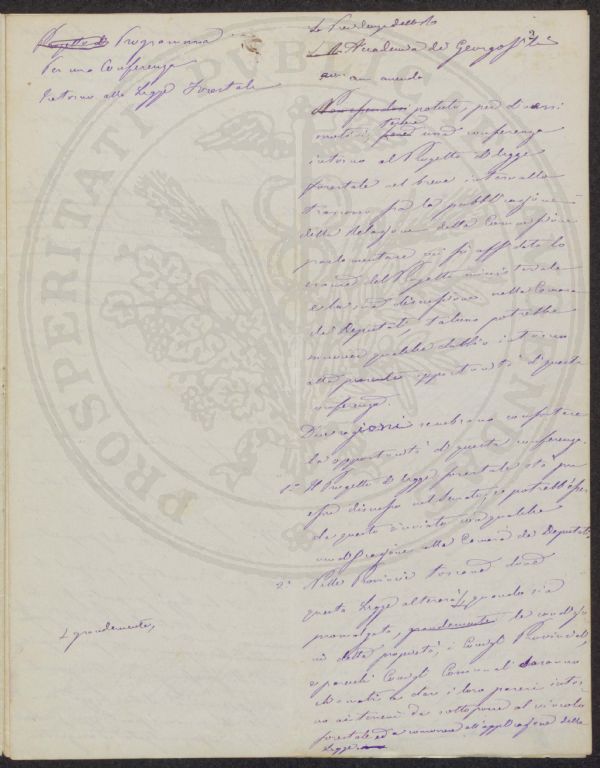 Progetto di Programma
Per una Conferenza
intorno alla Legge Forestale
La Presidenza della R.
Accademia dei Georgofili
2
potuto, per diversi
motivi, tenere una conferenza
intorno al Progetto di legge
forestale nel breve intervallo
trascorso fra la pubblicazione
della Relazione della Commissione
parlamentare cui fu affidato lo
esame del Progetto ministeriale
e la sua discussione nella Camera
dei Deputati, taluno potrebbe
muovere qualche dubbio intorno
alla opportunità di questa
conferenza.
Due ragioni sembrano confutare
la opportunità di questa conferenza.
1° Il Progetto di legge forestale sta per
esser discusso nel Senato, e potrebb'esser
da questo rinviato con qualche
modificazione alla Camera dei Deputati
2° Nelle Provincie toscane dove
questa Legge altererà, quando sia
promulgata, grandemente le condizio
ni della proprietà, i Consigli Provinciali,
e parecchi Consigli Comunali saranno
chiamati a dare i loro pareri intor
no ai terreni da sottoporre al vincolo
forestale ed a concorrere all'applicazione della
Legge
grandemente,
PROSPERITATI PUBLICAE